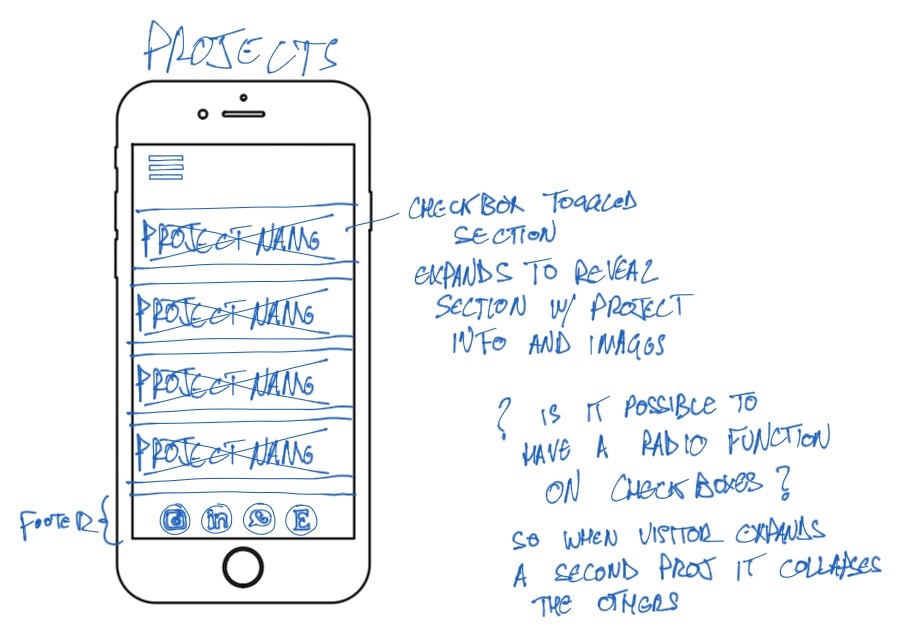 PROJECTS
PROJECT NAME
PROJECT NAME
PROJECT NAME
PROJECT NAME
FOOTER
in
E
CHECKBOX TOGGLED
SECTION
EXPANDS TO REVEAL
SECTION W/ PROJECT
INFO AND IMAGES
? IS IT POSSIBLE TO
HAVE A RADIO FUNCTION
ON CHECKBOXES ?
SO WHEN VISITOR EXPANDS
A SECOND PROJ IT COLLAPSES
THE OTHERS